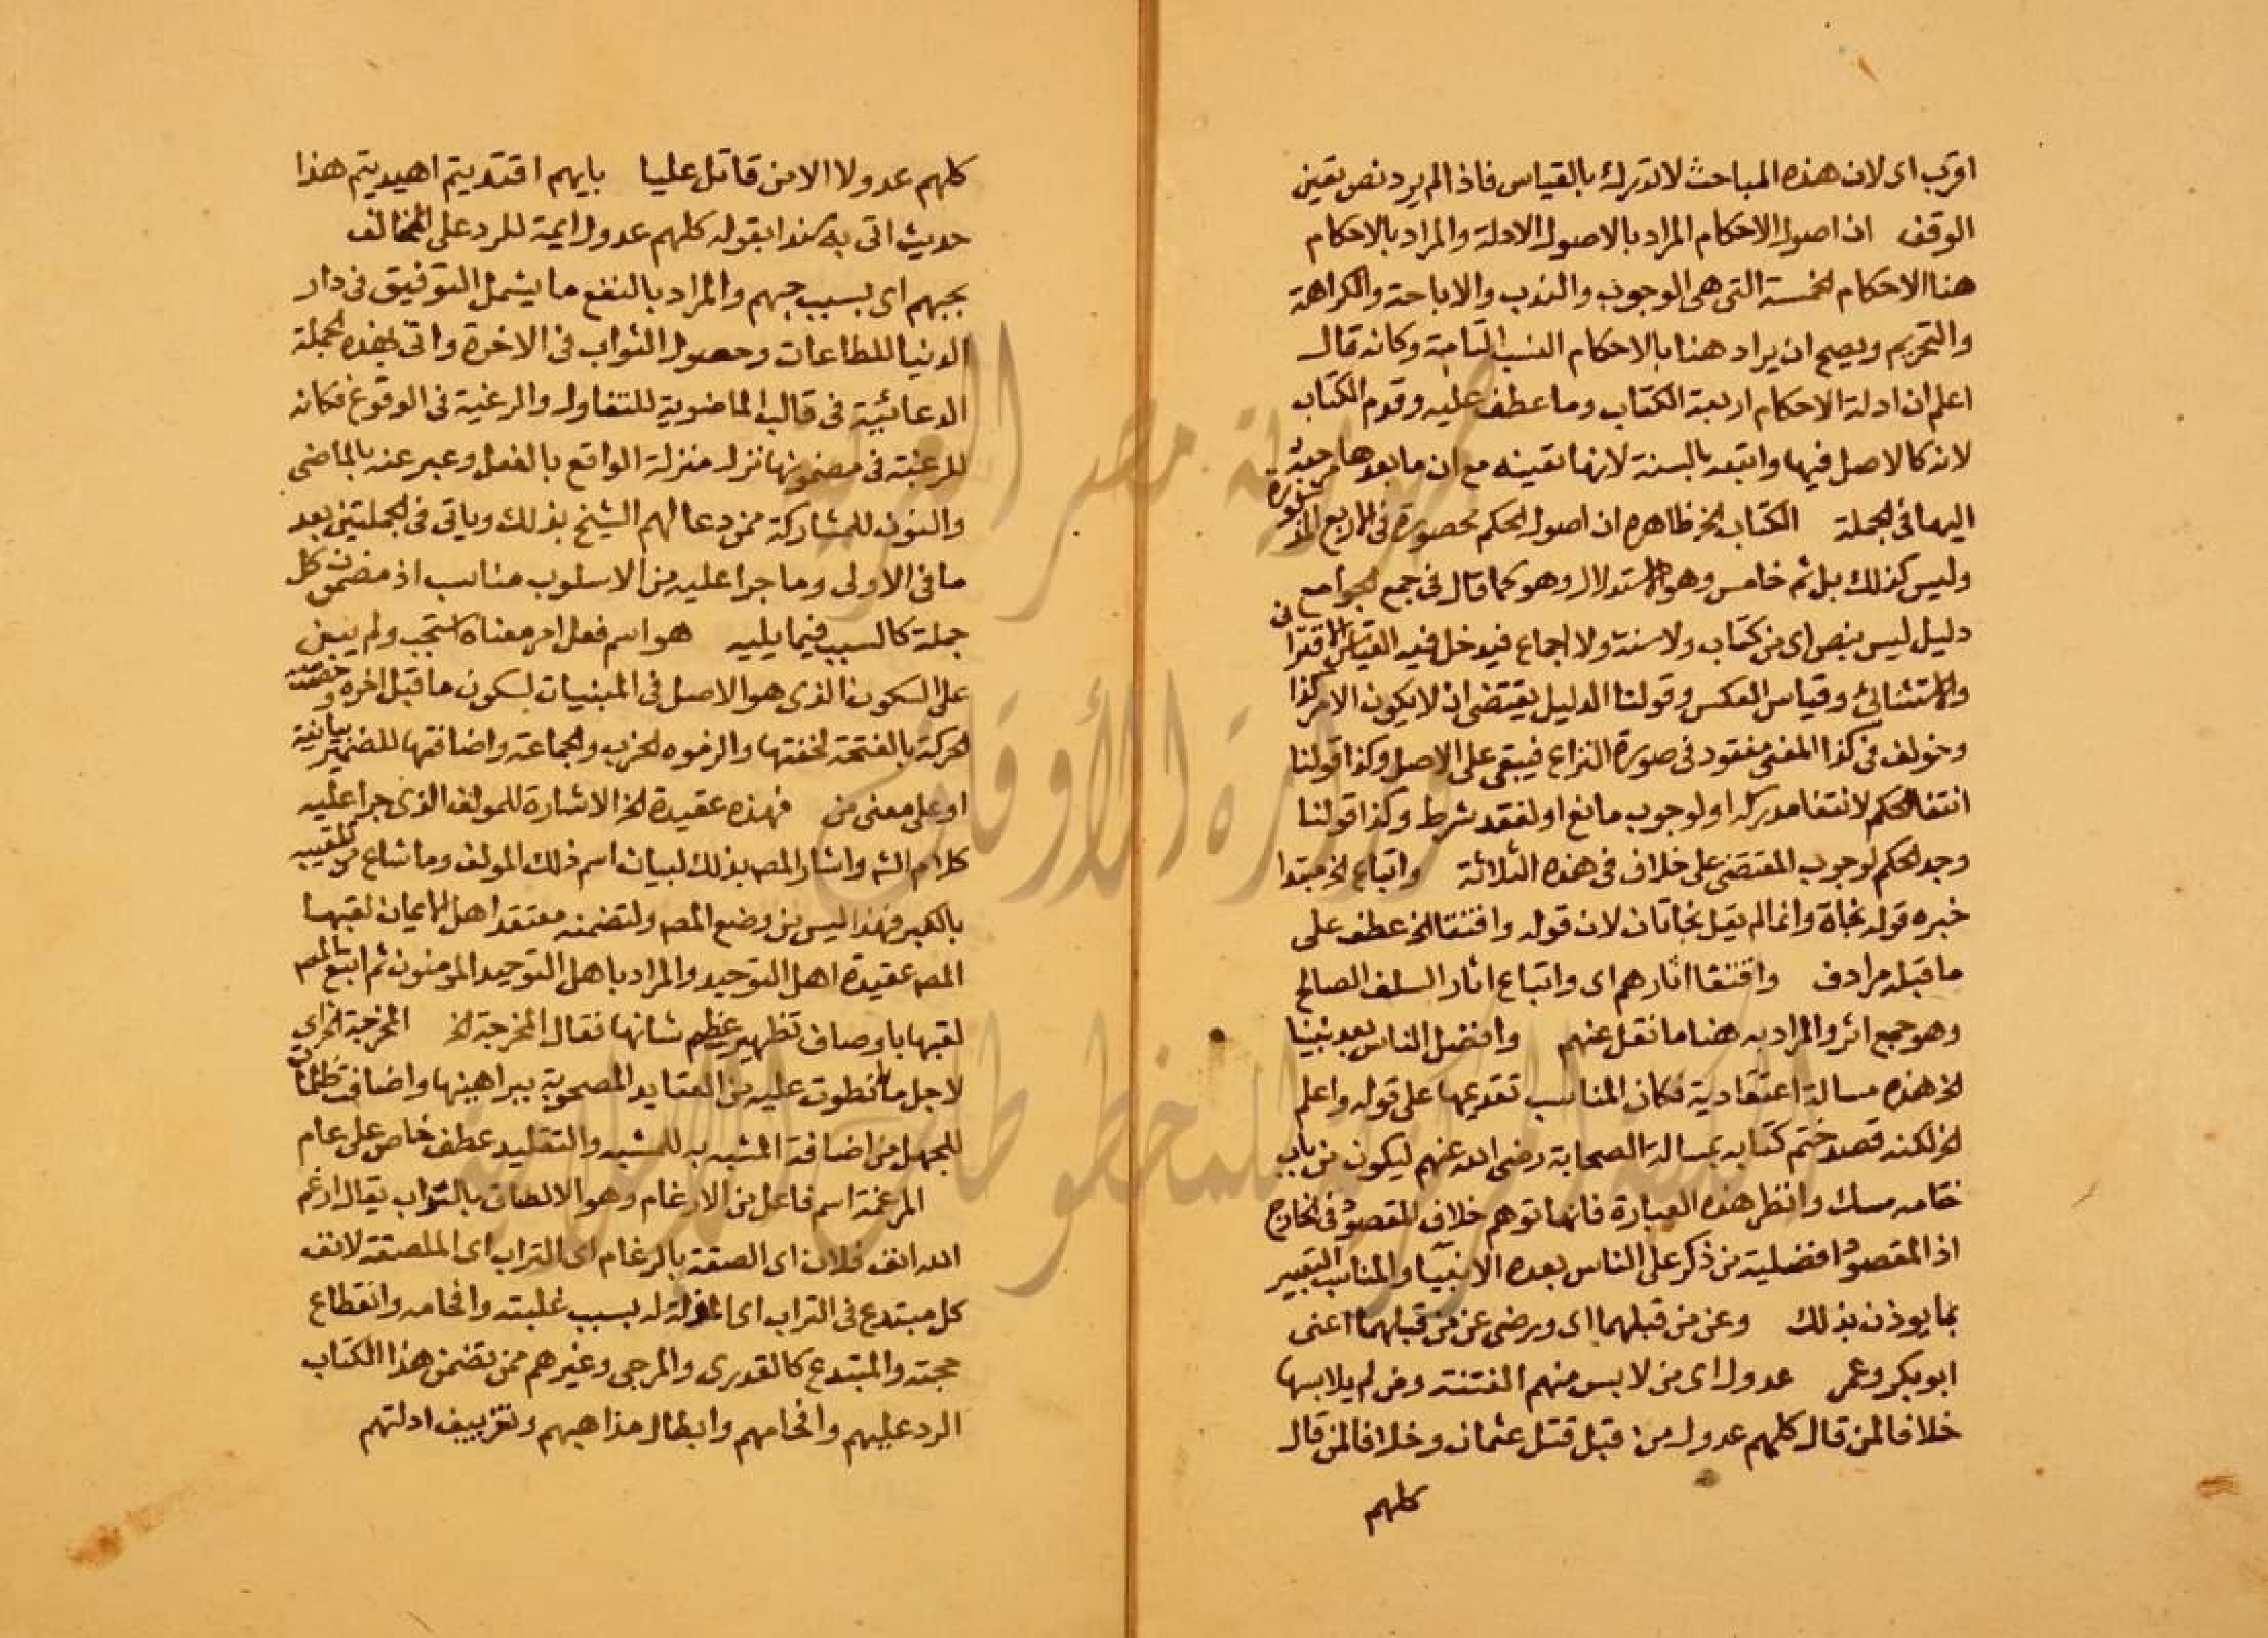 اقرب اى لان هذه المباحث لا تدرك بالقياس فاذا لم يرد نص تعين
الوقف ان اصول الاحكام المراد بالاصول الادلة والمراد بالاحكام
هنا الاحكام الخمسة التى هى الوجوب والندب والاباحة والكراهة
والتحريم ويصح ان يراد هنا بالاحكام النسب التامة وكانه قال
اعلم ان ادلة الاحكام اربعة الكتاب وما عطف عليه وقدم الكتاب
لانه كالاصل فيها واتبعه بالسنة لانها تعينه مع ان ما بعدها مرجعه
اليها فى الجملة الكتاب الخ ظاهره ان اصول الحكم محصورة فى الاربع المذكورة
وليس كذلك بل ثم خامس وهو الاستدلال وهو كما قال فى جمع الجوامع
دليل ليس بنص اى من كتاب ولا سنة ولا اجماع فيدخل فيه القياس الاقترانى
والاستثنائى وقياس العكس وقولنا الدليل يقتضى ان لا يكون الامر كذا
وخولف فى كذا المعنى مفقود فى صورة النزاع فيبقى على الاصل وكذا قولنا
انتفا الحكم لانتفا مدركه او لوجوب مانع او لفقد شرط وكذا قولنا
وجد الحكم لوجوب المقتضى على خلاف فى هذه الثلاثة واتباع الخ مبتدا
خبره قوله نجاة وانما لم يقل نجاتان لان قوله واقتفا الخ عطف على
ما قبله مرادف واقتفا اثارهم اى واتباع اثار السلف الصالح
وهو جمع اثر والمراد به هنا ما نقل عنهم وافضل الناس بعد نبينا
الخ هذه مسالة اعتقادية فكان المناسب تقديمها على قوله واعلم
الخ لكنه قصد ختم كتابه بمسالة الصحابة رضى الله عنهم ليكون من باب
ختامه مسك وانظر هذه العبارة فانها توهم خلاف المقصود فى الخارج
اذ المقصود افضلية من ذكر على الناس بعده الا الانبيا والمناسب التعبير
بما يوذن بذلك وعن من قبلهما اى ورضى عن من قبلهما اعنى
ابو بكر وعمر عدول اى من لابس منهم الفتنة ومن لم يلابسها
خلافا لمن قال كلهم عدول من قبل قتل عثمان وخلافا لمن قال
كلهم
كلهم عدولا الا من قاتل عليا بايهم اقتديتم اهتديتم هذا
حديث اتى به سندا بقوله كلهم عدول ايمة للرد على المخالف
بحبهم اى بسبب حبهم والمراد بالنفع ما يشمل التوفيق فى دار
الدنيا للطاعات وحصول الثواب فى الاخرة واتى بهذه الجملة
الدعائية فى قالب الماضوية للتفاول والرغبة فى الوقوع فكانه
للرغبة فى مضمونها نزله منزلة الواقع بالفعل وعبر عنه بالماضى
والنون للمشاركة ممن دعا لهم الشيخ بذلك وياتى فى الجملتين بعد
ما فى الاولى وما جرا عليه من الاسلوب مناسب اذ مضمون كل
جملة كالسبب فيما يليه هو اسم فعل امر معناه استجب ولم يبن
على السكون الذى هو الاصل فى المبنيات لسكون ما قبل اخره وخصت
الحركة بالفتحة لخفتها والزموه الحزب والجماعة واضافتها للضمير بيانية
او على معنى من فهذه عقيدة الخ الاشارة للمولف الذى جرا عليه
كلام الشه واشار المصه بذلك لبيان اسم ذلك المولف وما شاع من تلقيبه
بالكبير فهذا ليس من وضع المصه ولتضمنه معتقد اهل الايمان لقبها
المصه عقيدة اهل التوحيد والمراد باهل التوحيد المومنون ثم اتبع المصه
لقبها باوصاف تظهر عظيم شانها فقال المخرجة الخ المخرجة الخ اى
لاجل ما انطوت عليه من العقايد المصحوبة ببراهينها واضافة ظلمات
للجهل من اضافة المشبه به للمشبه والتقليد عطف خاص على عام
المرغمة اسم فاعل من الارغام وهو الالصاق بالتراب يقال ارغم
الله انف فلان اى الصقه بالرغام اى التراب اى الملصقة لانف
كل مبتدع فى التراب اى المذلة له بسبب غلبته وافحامه وانقطاع
حجته والمبتدع كالقدرى والمرجى وغيرهم ممن تضمن هذا الكتاب
الرد عليهم وافحامهم وابطال مذاهبهم وتزييف ادلتهم